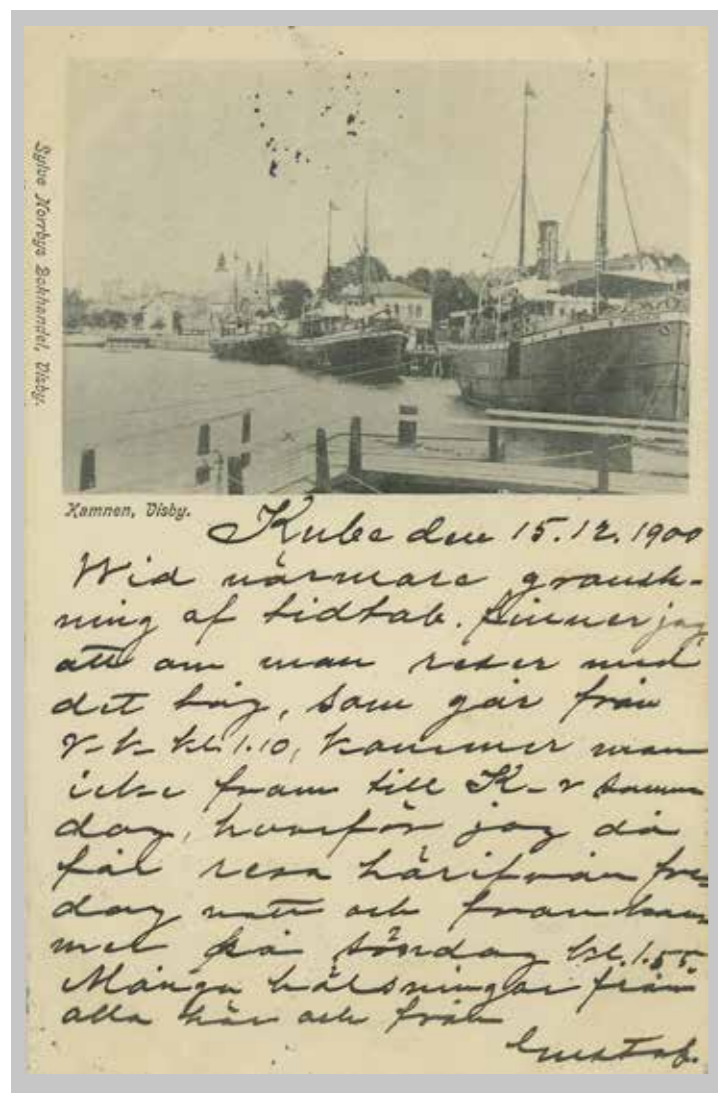 Sylve Norrbys Bokhandel, Visby.
Hamnen, Visby.
Kube den 15.12. 1900
Wid närmare gransk-
ning af tidtab. finner jag
att om man reser med
det tåg, som går från
V-k kl. 1.10, kommer man
icke fram till K-r samma
dag, hvarför jag då
får resa härifrån fre-
dag natt och framkom-
mer på söndag kl. 1.55.
Många hälsningar från
alla här och från
Gustaf.